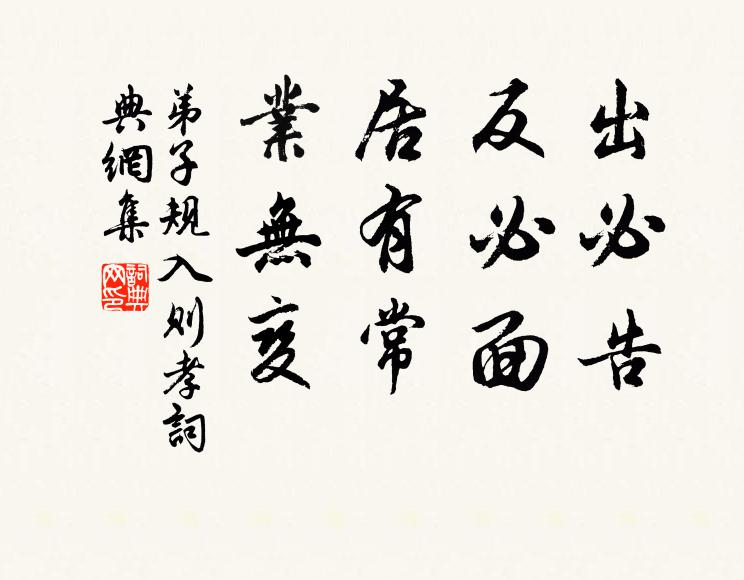 出必告
反必面
居有常
業無變
弟子規入則孝詞
典網集
詞典
网印